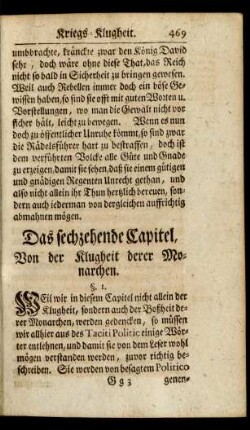 Kriegs-Klugheit. 469
umbbrachte, kränckte zwar den König David
sehr, doch wäre ohne diese That, das Reich
nicht so bald in Sicherheit zu bringen gewesen.
Weil auch Rebellen immer doch ein böse Ge-
wissen haben, so sind sie offt mit guten Worten u.
Vorstellungen, wo man die Gewalt nicht vor
sicher hält, leicht zu bewegen. Wenn es nun
doch zu öffentlicher Unruhe kömmt, so sind zwar
die Rädelsführer hart zu bestraffen, doch ist
dem verführten Volcke alle Güte und Gnade
zu erzeigen, damit sie sehen, daß sie einem gütigen
und gnädigen Regenten Unrecht gethan, und
also nicht allein ihr Thun hertzlich bereuen, son-
dern auch iederman von dergleichen auffrichtig
abmahnen mögen.
Das sechzehende Capitel,
Von der Klugheit derer Mo-
narchen.
§. 1.
WEil wir in diesem Capitel nicht allein der
Klugheit, sondern auch der Boßheit de-
rer Monarchen, werden gedencken, so müssen
wir allhier aus des Taciti Politic einige Wör-
ter entlehnen, und damit sie von dem Leser wohl
mögen verstanden werden, zuvor richtig be-
schreiben. Sie werden von besagtem Politico
Gg 3 genen-